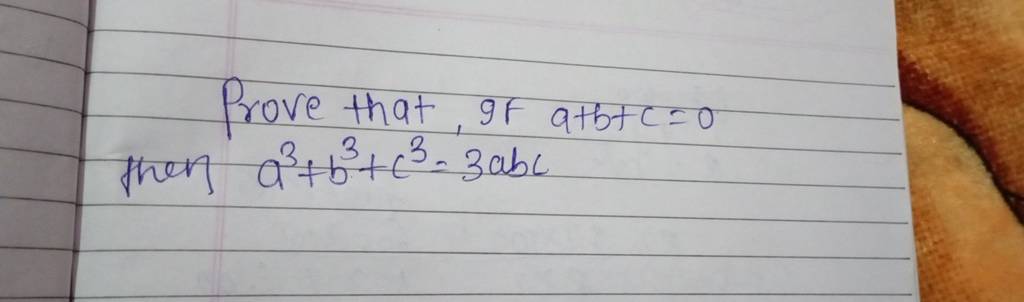 Prove that, If a+b+c=0
then a³+b³+c³=3abc